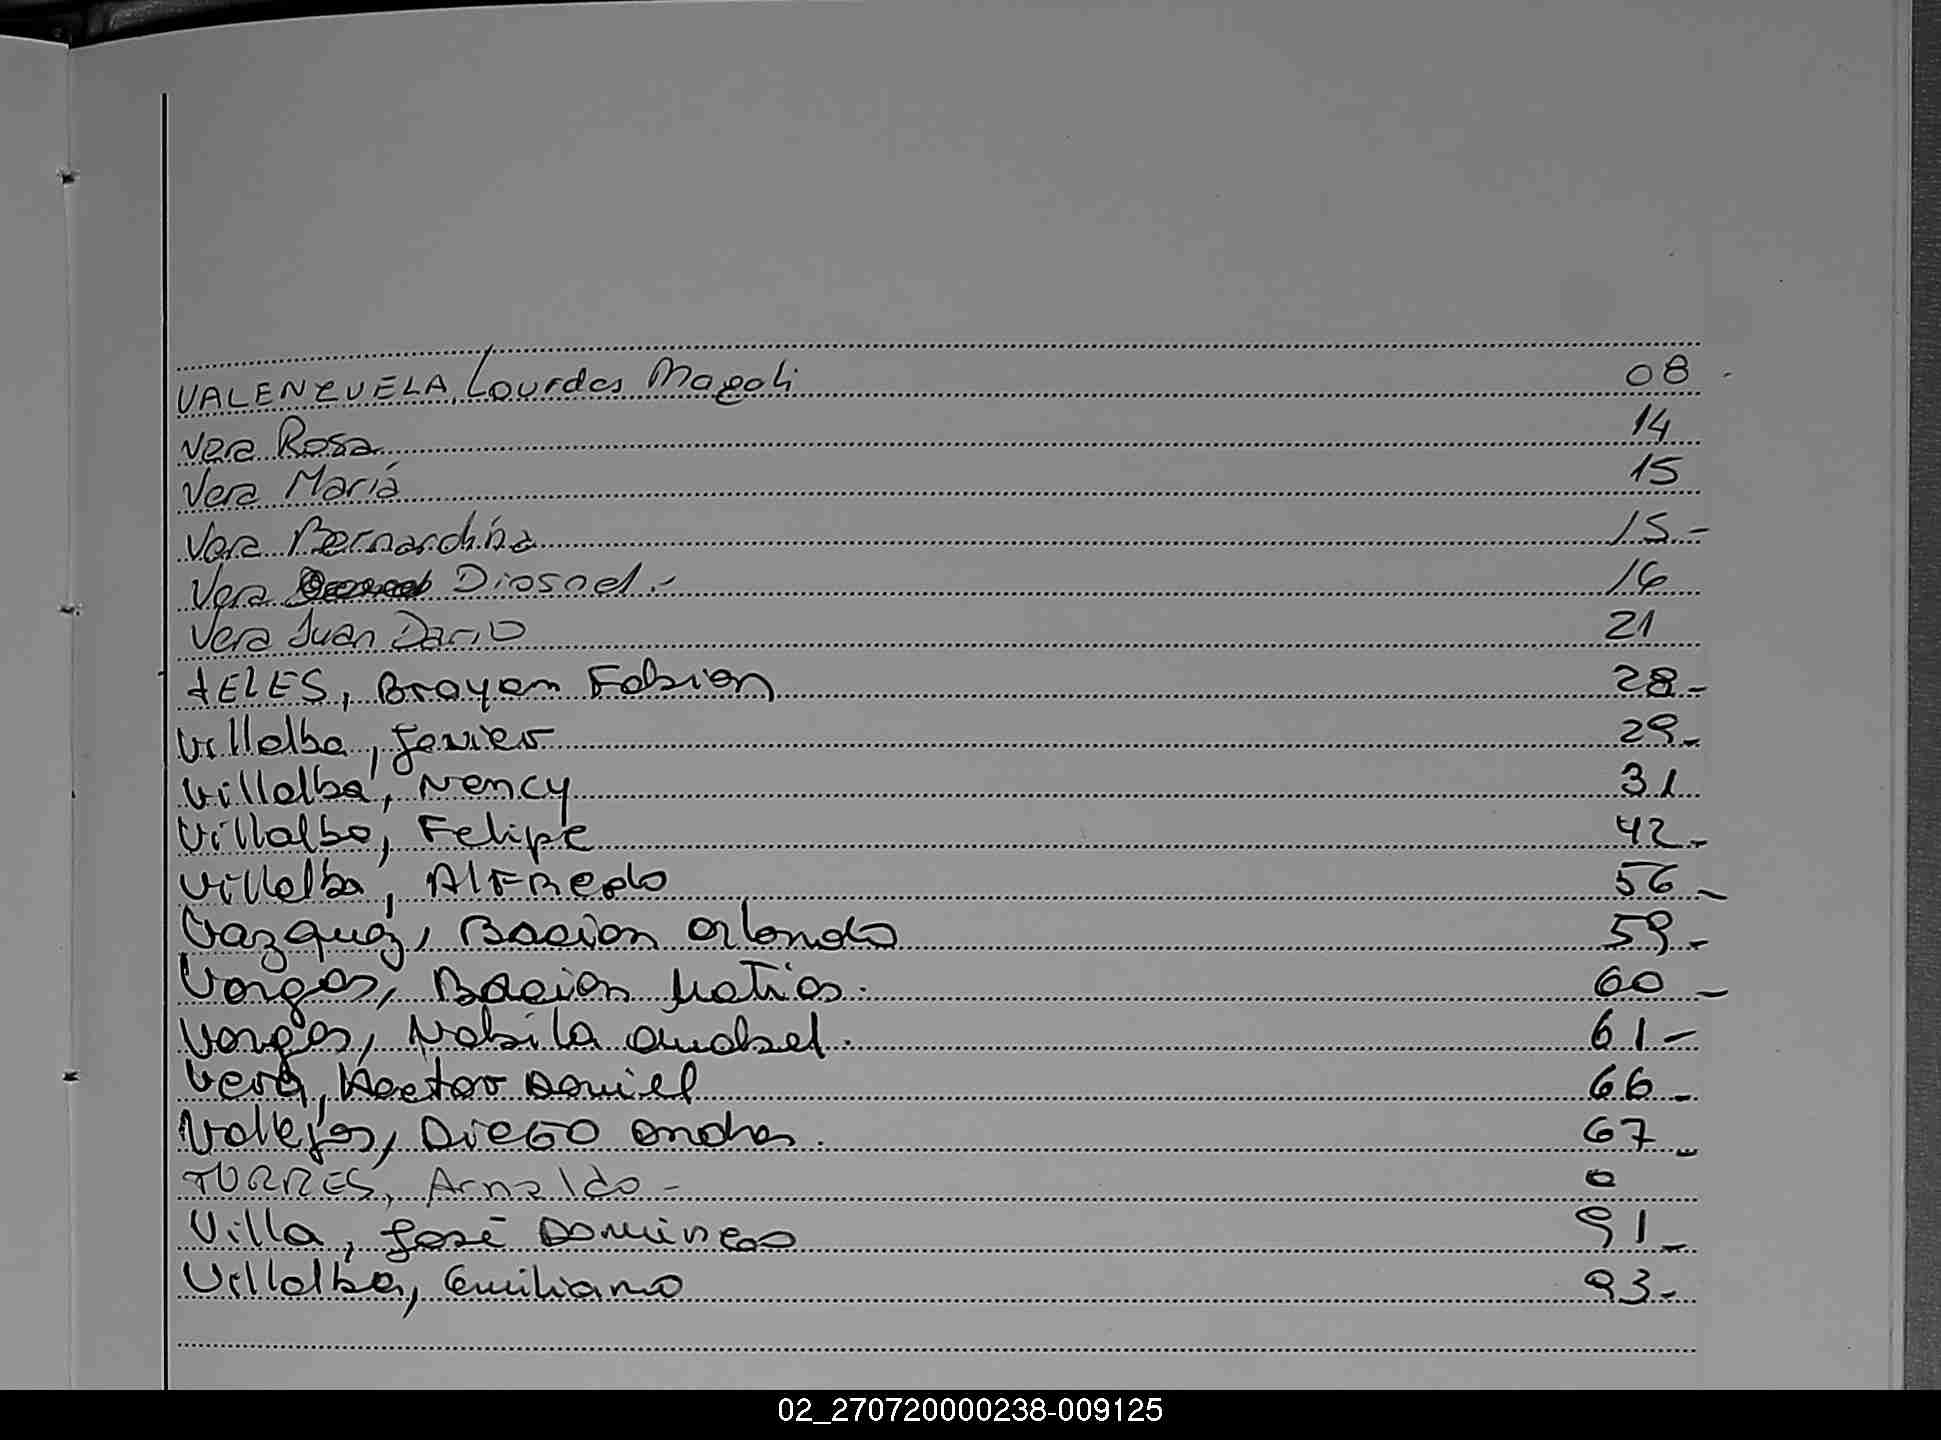 VALENZUELA, Lourdes Magali 08
Vera Rosa 14
Vera María 15
Vera Bernardina 15.-
Vera Diosnel.- 16
Vera Juan Dario 21
Brayan Fabian 28-
Villalba, Javier 29-
Villalba, Nency 31
Villalba, Felipe 42-
Villalba, AlFRedo 56-
Vazquez, Orlando 59-
Vargas, Matias. 60-
Vargas, Anabel. 61-
Vera, Hector Daniel 66-
Vallejos, DiEGO Andres. 67-
TORRES, Arnaldo-
Villa, José Domingo 91-
Villalba, Emiliano 93-
02_270720000238-009125